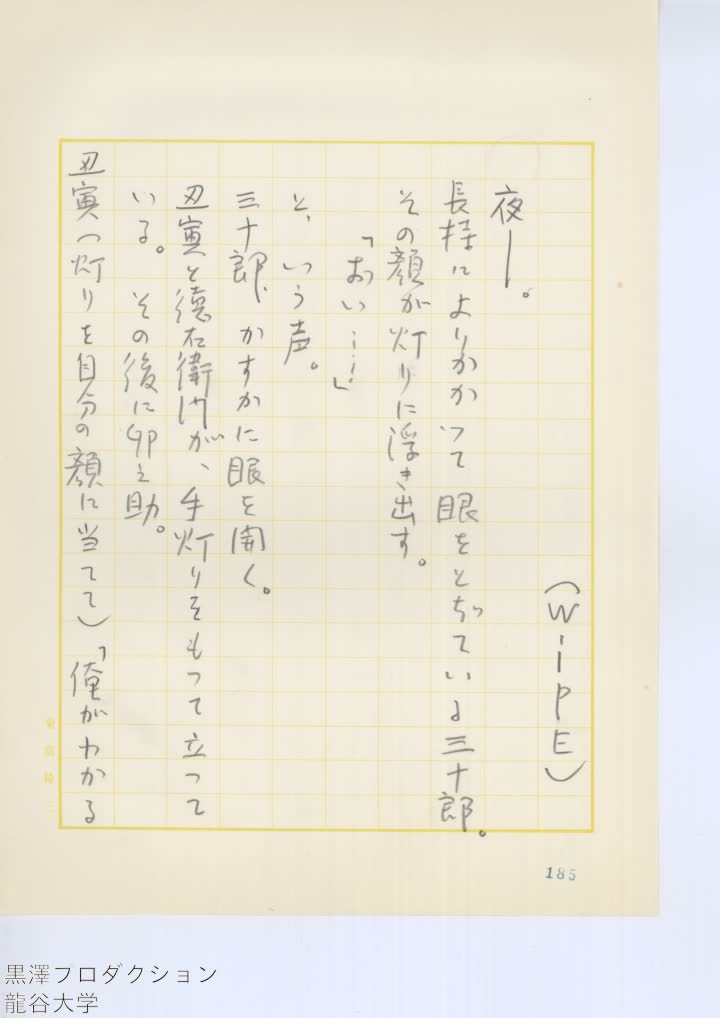 （WIPE）
夜―。
長持によりかかって眼をとぢている三十郎。
その顔が灯りに浮き出す。
「おい……」
と、いう声。
三十郎、かすかに眼を開く。
丑寅と徳右衛門が、手灯りをもって立って
いる。その後に卯之助。
丑寅（灯りを自分の顔に当てて）「俺がわかる
185
黒澤プロダクション
龍谷大学